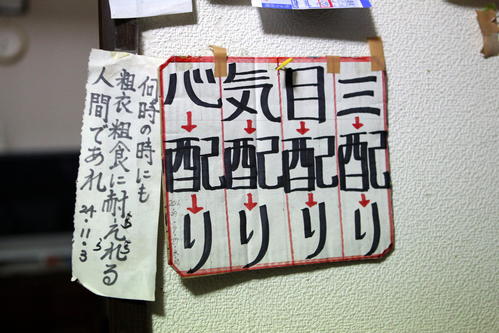 三→配→り
目→配→り
気→配→り
心→配→り
何時の時にも
粗衣粗食に耐えれる
人間であれ 24.11.3